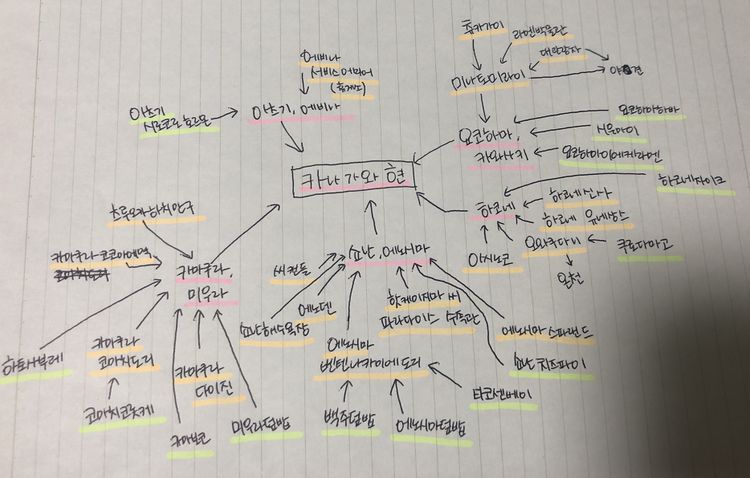 춤카가이
라멘박물관
대관람차
에비나
서비스에리어
(휴게소)
미나토미라이
야견
아츠기
시로코로 호르몬
아츠기, 에비나
요코하마,
카와사키
요코하마하버
시우마이
요코하마이에케라멘
카나가와 현
하코네
하코네자이크
하코네신사
하코네 유넷상스
츠루오카하치만구
카마쿠라 코코마에역
카마쿠라,
미우라
씨캔들
쇼난, 에노시마
아시노코
오와쿠다니
쿠로타마고
온천
쇼난해수욕장
에노덴
핫케이지마 씨
파라다이스 수족관
에노시마 스파랜드
하토사부레
카마쿠라
코마치도리
카마쿠라
다이진
에노시마
벤텐나카미세도리
쇼난 치즈파이
코마치코롯케
카마보코
미우라덮밥
뱅어덮밥
에노시마덮밥
타코센베이